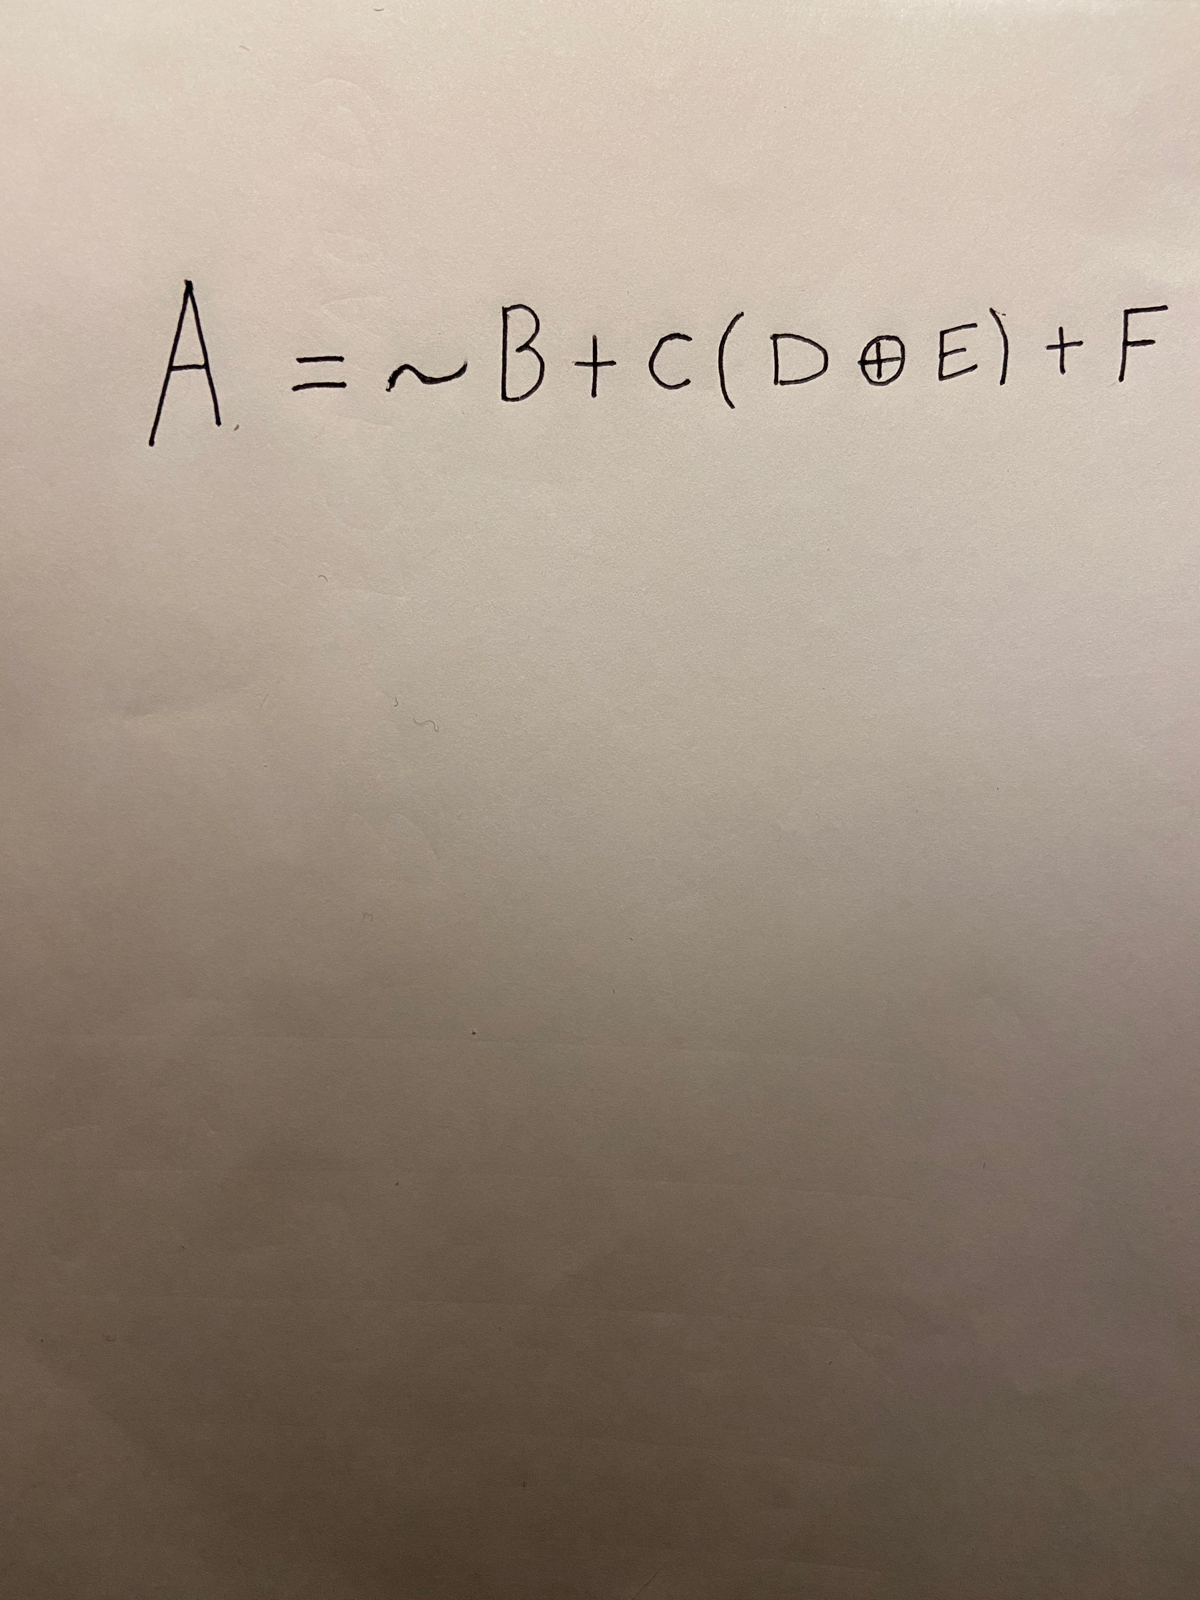 A = ~ B + C ( D ⊕ E ) + F